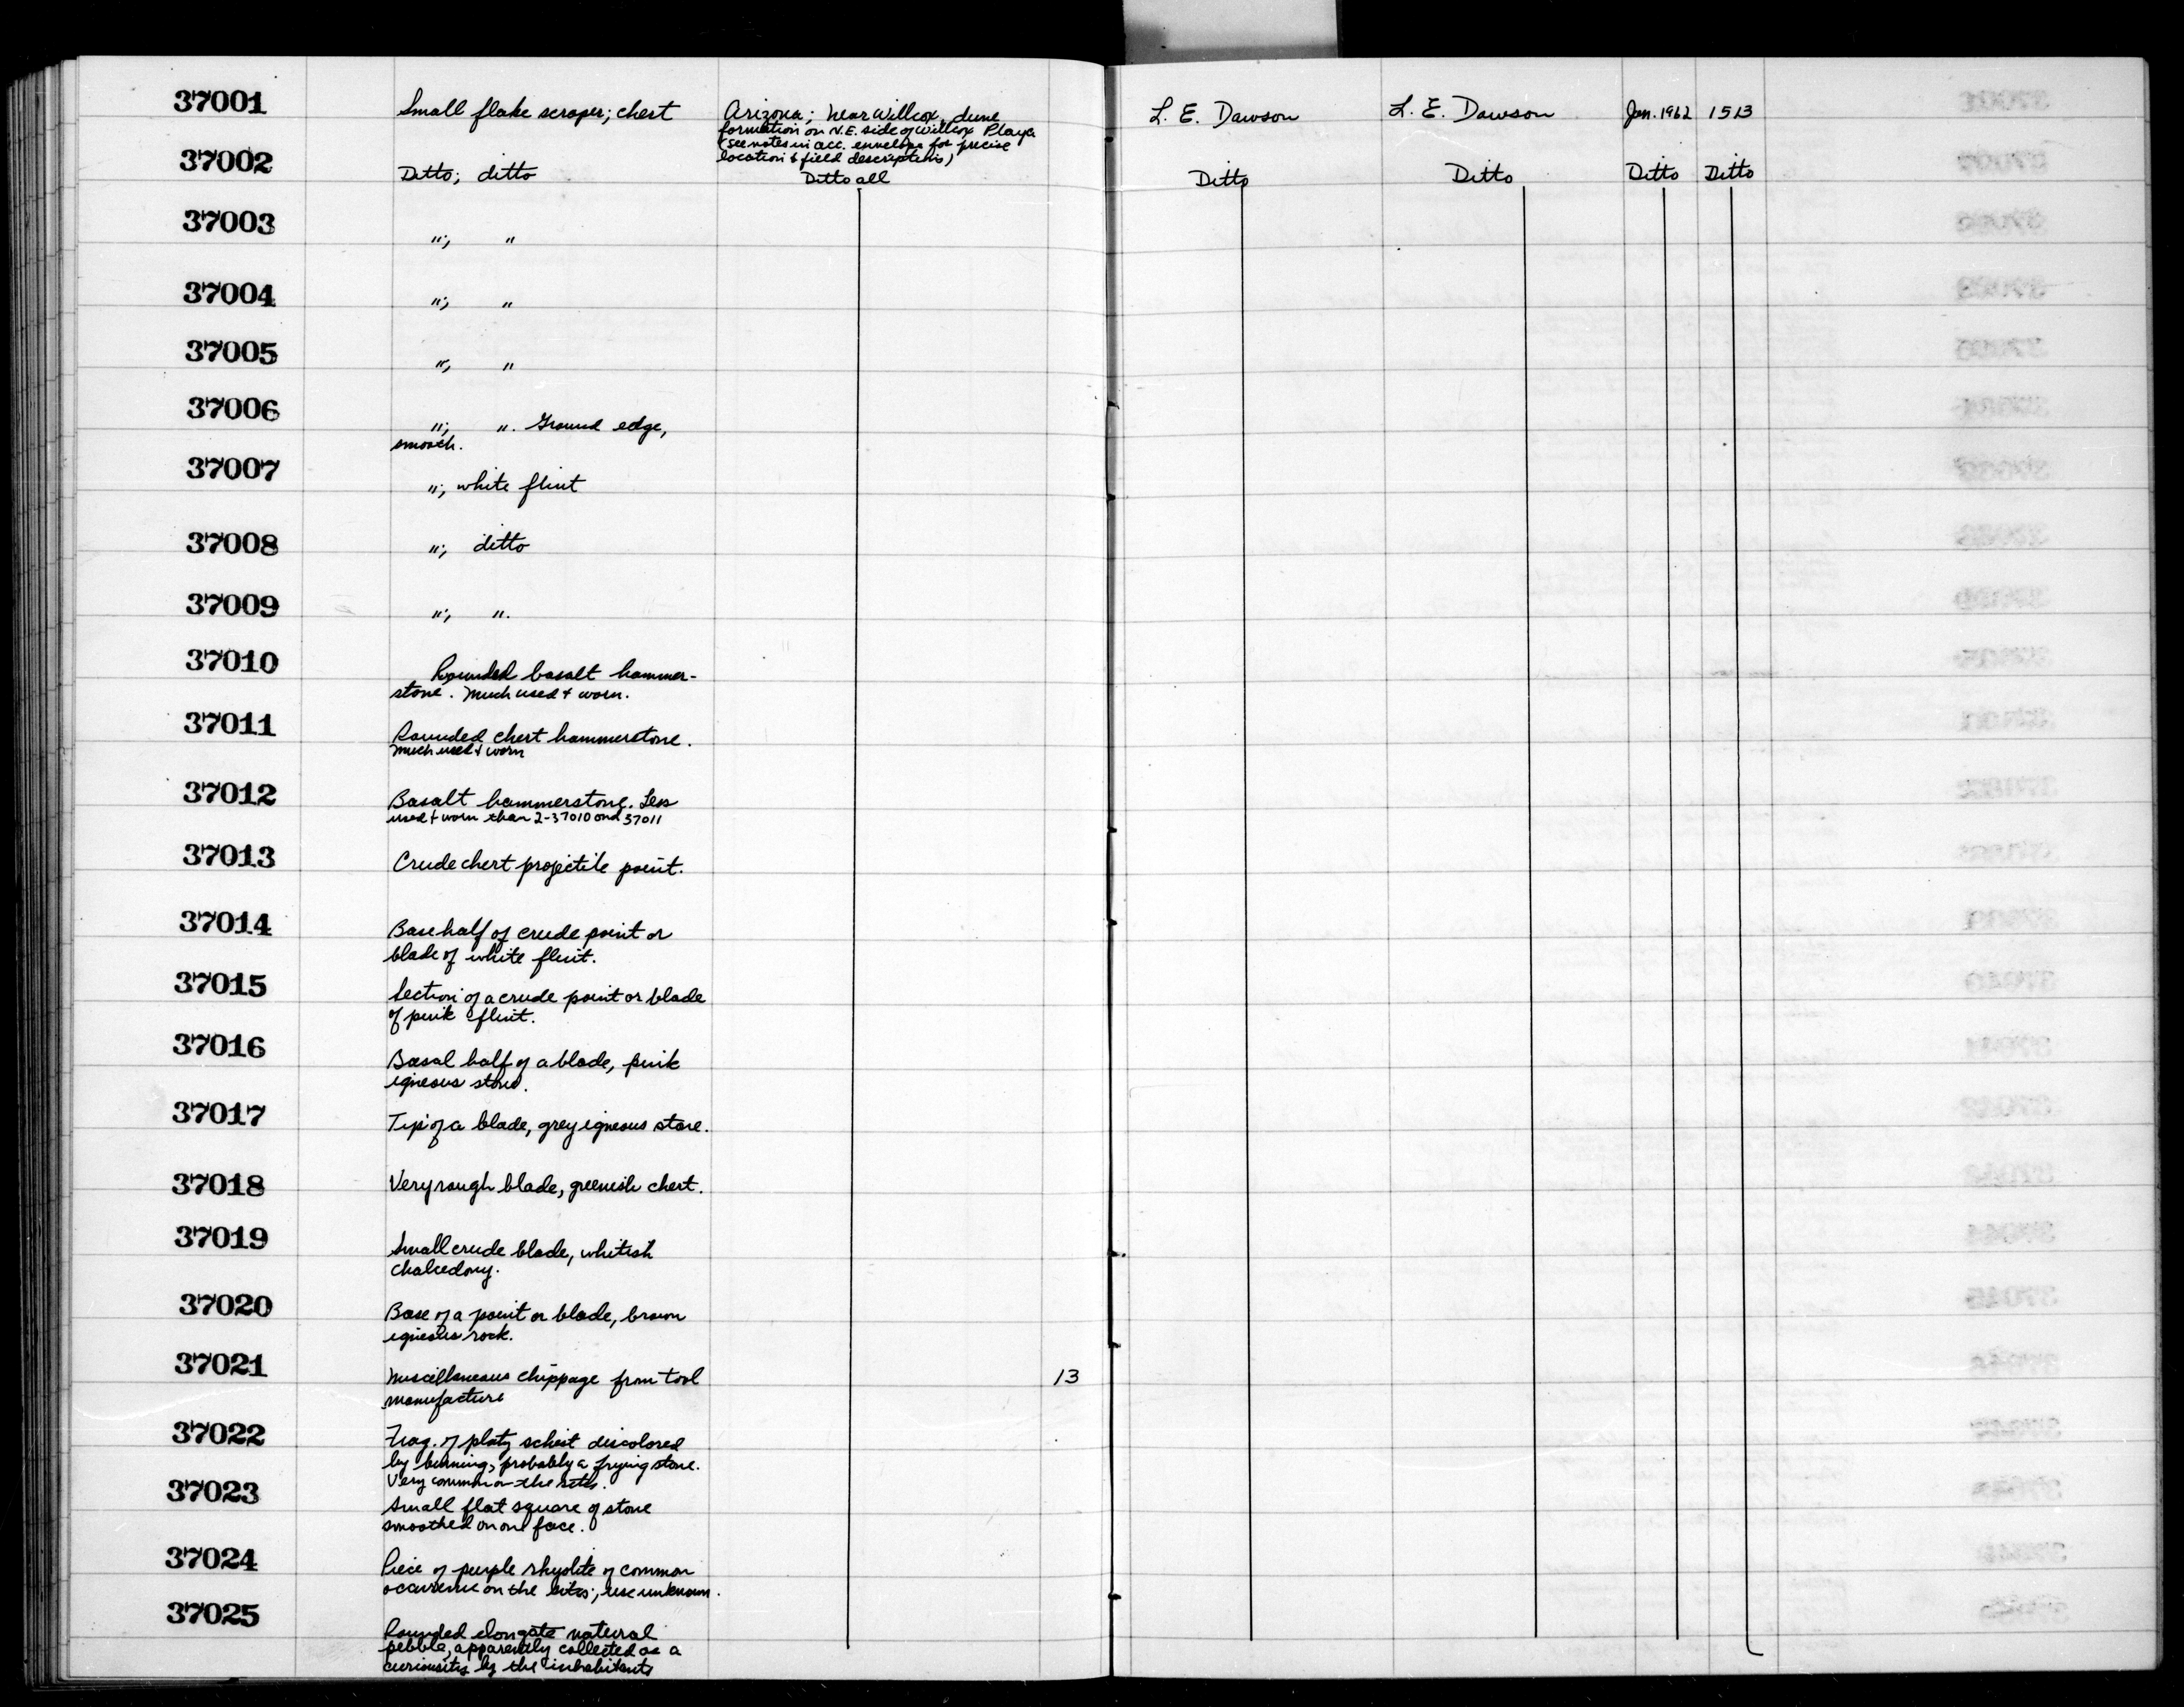 37001 Small flake scraper; chert Arizona; near Willcox, dune L. E. Dawson L. E. Dawson Jan. 1962 1513
formation on N.E. side of Willcox Playa
(see notes in acc. envelope for precise
location & field descriptions)
37002 Ditto; ditto Ditto all Ditto Ditto Ditto Ditto
37003 "; "
37004 "; "
37005 "; "
37006 "; ". Ground edge,
smooth.
37007 "; white flint
37008 "; ditto
37009 "; ".
37010 Rounded basalt hammer-
stone. Much used & worn.
37011 Rounded chert hammerstone.
Much used & worn
37012 Basalt hammerstone. Less
used & worn than 2-37010 and 37011
37013 Crude chert projectile point.
37014 Base half of crude point or
blade of white flint.
37015 Section of a crude point or blade
of pink flint.
37016 Basal half of a blade, pink
igneous stone.
37017 Tip of a blade, grey igneous stone.
37018 Very rough blade, greenish chert.
37019 Small crude blade, whitish
chalcedony.
37020 Base of a point or blade, brown
igneous rock.
37021 Miscellaneous chippage from tool 13
manufacture
37022 Frag. of platy schist discolored
by burning, probably a frying stone.
Very common on the sites.
37023 Small flat square of stone
smoothed on one face.
37024 Piece of purple rhyolite of common
occurrence on the sites; use unknown.
37025 Rounded elongate natural
pebble, apparently collected as a
curiousity by the inhabitants